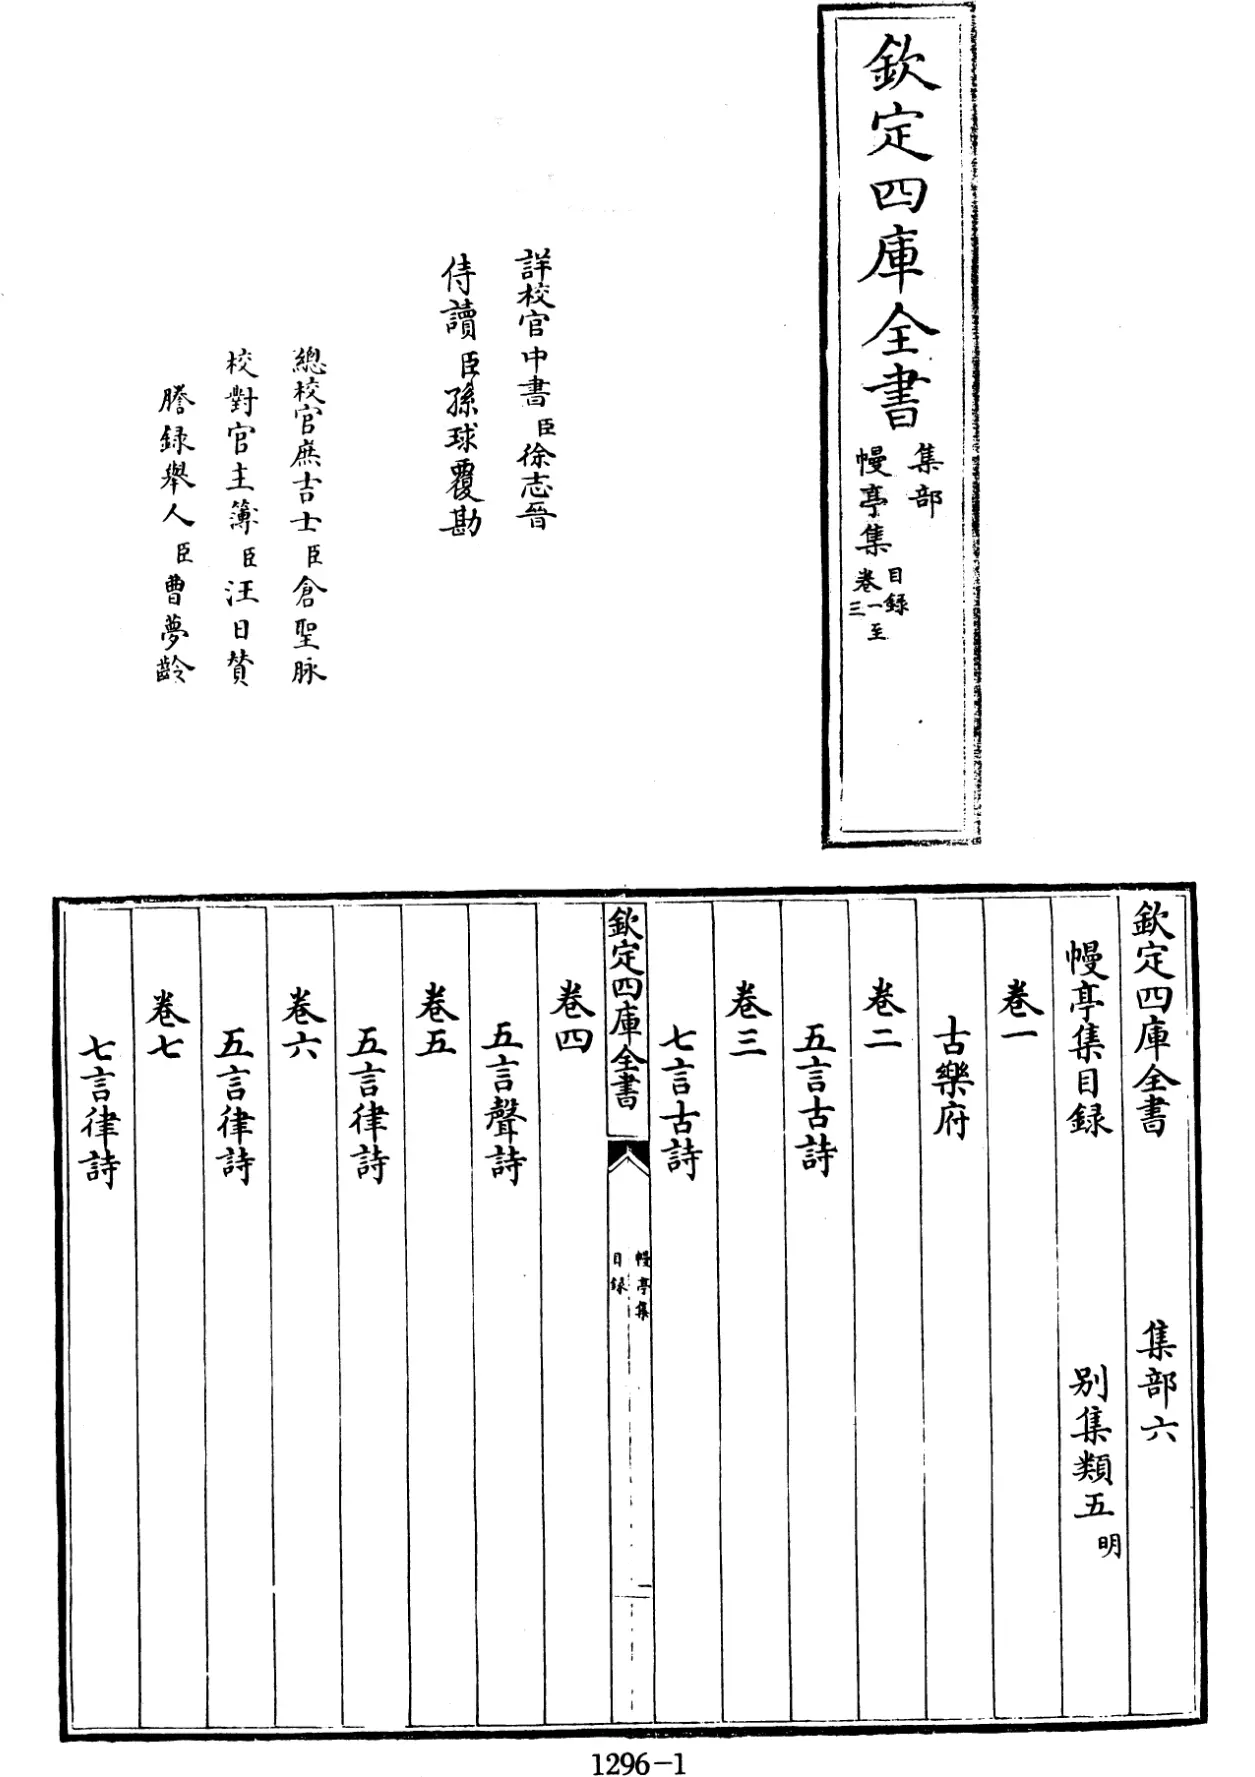 欽定四庫全書
集部
幔亭集
目録
卷一至三
詳校官中書臣徐志晉
侍讀臣孫球覆勘
總校官庶吉士臣倉聖脉
校對官主簿臣汪日贊
謄録舉人臣曹夢齡
欽定四庫全書 集部六
幔亭集目録 别集類五 明
卷一
古樂府
卷二
五言古詩
卷三
七言古詩
欽定四庫全書
幔亭集
目録
一
卷四
五言聲詩
卷五
五言律詩
卷六
五言律詩
卷七
七言律詩
1296-1